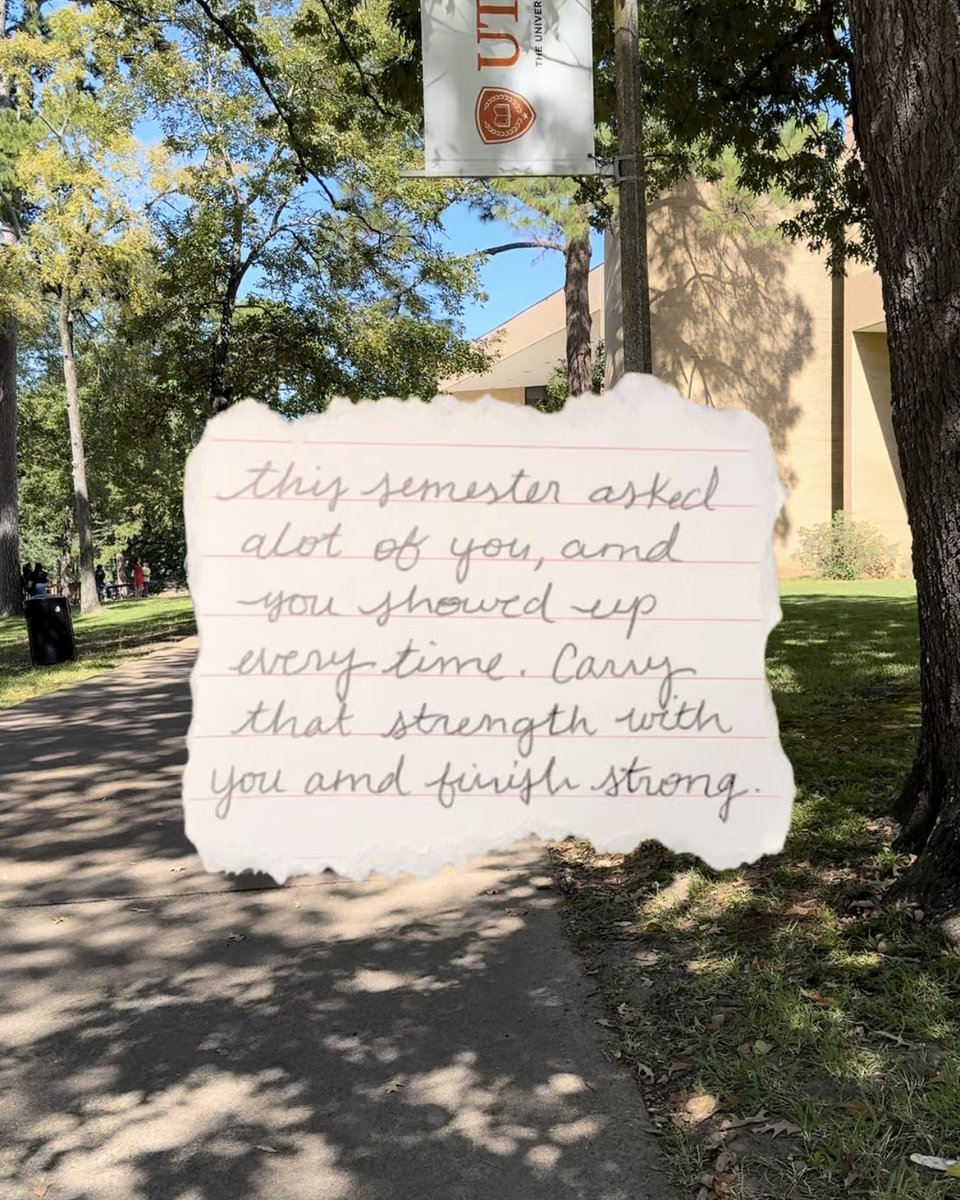 UT
THE UNIVER
this semester asked
alot of you, and
you showed up
every time. Carry
that strength with
you and finish strong.